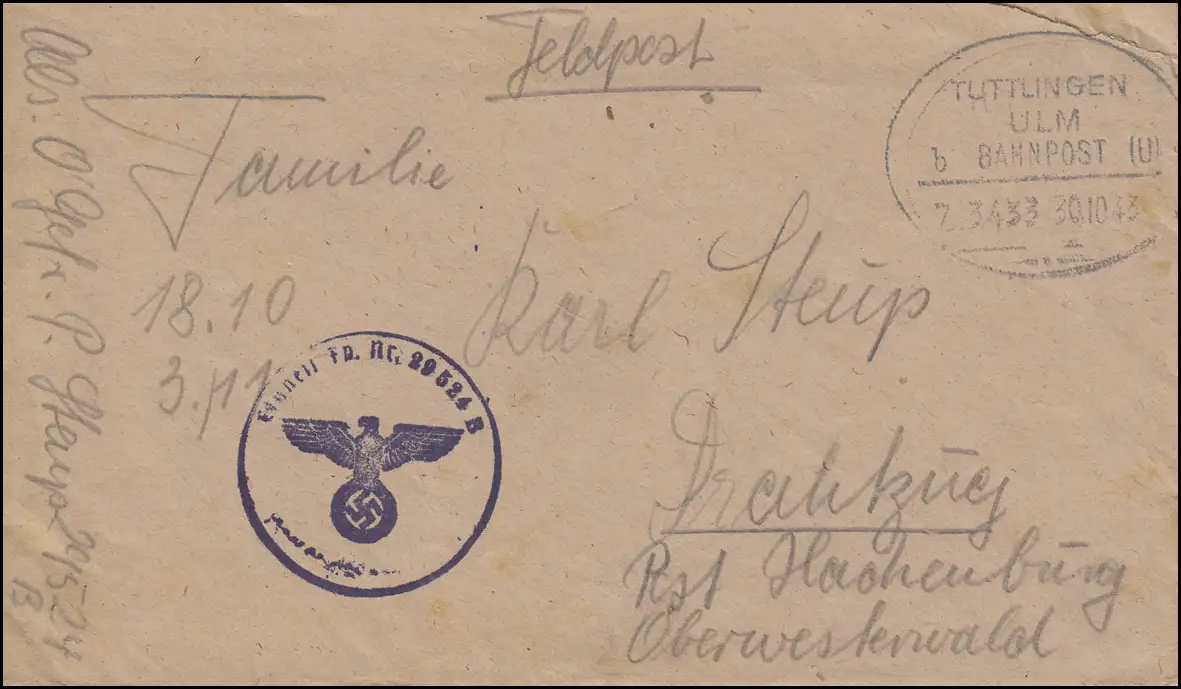 Feldpost
TUTTLINGEN
ULM
b BAHNPOST (U)
Z. 3433 30.10.43
Familie
Karl Steup
18.10
3.11
Fp. Nr. 29524 B
Rst Hachenburg
Oberwesterwald
Abs. O'Gefr. P. Steup 29524
B